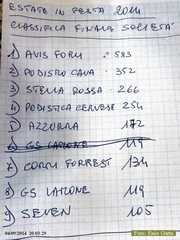 ESTATE IN FESTA 2014
CLASSIFICA FINALE SOCIETA'
1) AVIS FORLI : 583
2) PODISTICA CAVA : 352
3) STELLA ROSSA : 266
4) PODISTICA CERVESE 254
5) AZZURRA 172
6) GS LAMONE 119
7) CORRI FORREST 134
8) GS LAMONE 119
9) SEVEN 105
04/09/2014 20:03:29